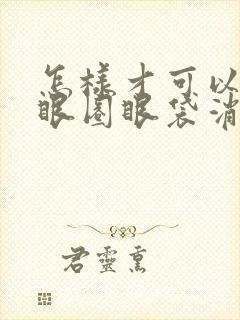 怎様才可以
眼圈眼袋消
君靈熏